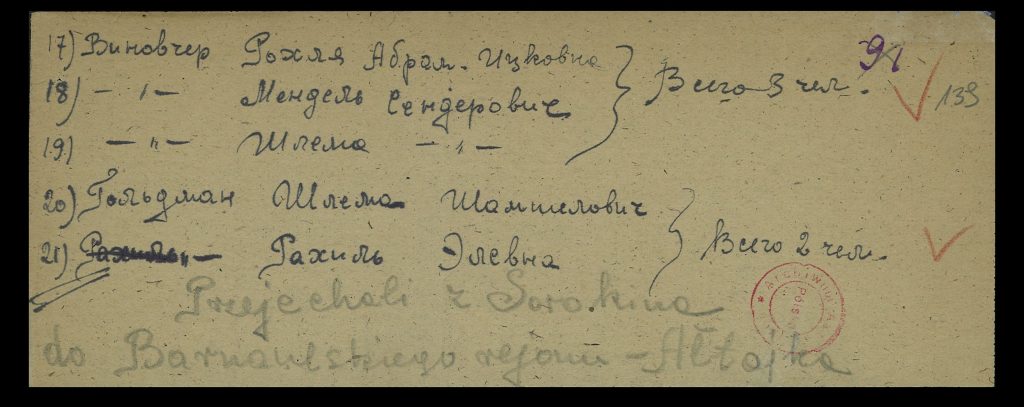 17) Виновчер Рохля Абрам-Ицковна
18) — " — Мендель Сендерович Всего 3 чел. 91 139
19) — " — Шлема — " —
20) Гольдман Шлема Шамшелович
21) — Рахиль Элевна Всего 2 чел.
Przejechali z Sorokina
do Barnaulskiego rejonu - Ałtajka
ARCHIWUM